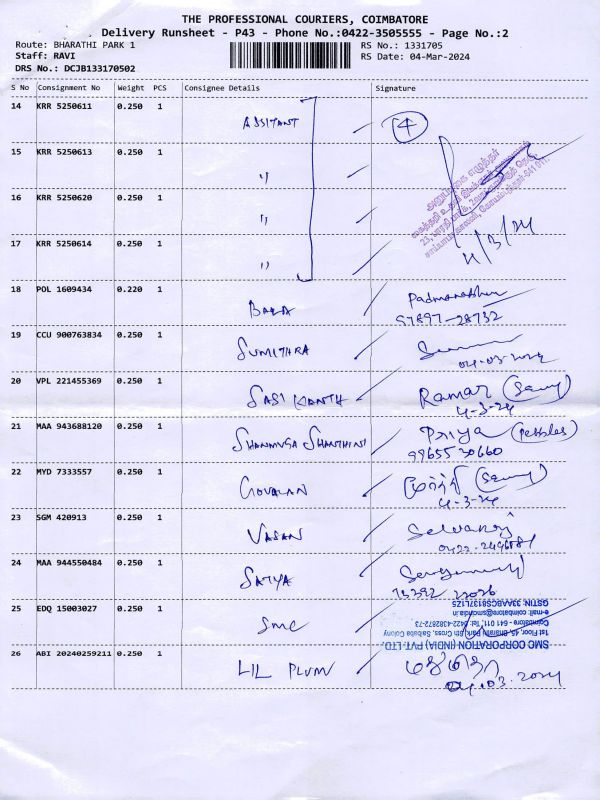 THE PROFESSIONAL COURIERS, COIMBATORE
Delivery Runsheet - P43 - Phone No.:0422-3505555 - Page No.:2
Route: BHARATHI PARK 1 RS No.: 1331705
Staff: RAVI RS Date: 04-Mar-2024
DRS No.: DCJB133170502
S No Consignment No Weight PCS Consignee Details Signature
14 KRR 5250611 0.250 1 ASSITANT 4
15 KRR 5250613 0.250 1 "
16 KRR 5250620 0.250 1 "
17 KRR 5250614 0.250 1 " 4/3/24
18 POL 1609434 0.220 1 BALA Padmanabhan
97897-28732
19 CCU 900763834 0.250 1 SUMITHRA
04-03-2024
20 VPL 221455369 0.250 1 SASI KANTH Ramar
4-3-24
21 MAA 943688120 0.250 1 SHANMUGA SHANTHINI Priya (pebbles)
9965530660
22 MYD 7333557 0.250 1 GOVALAN
4-3-24
23 SGM 420913 0.250 1 VASAN
24 MAA 944550484 0.250 1 SATYA
25 EDQ 15003027 0.250 1 SMC
SMC CORPORATION (INDIA) PVT. LTD.
1st Floor, 45, Bharathi Park, 6th Cross, Saibaba Colony
Coimbatore - 641 011. Tel: 0422-4382673
e-mail: coimbatore@smcindia.in
GSTIN: 33AABCS8137L1Z5
26 ABI 20240259211 0.250 1 LIL PLUM
04.03.2024